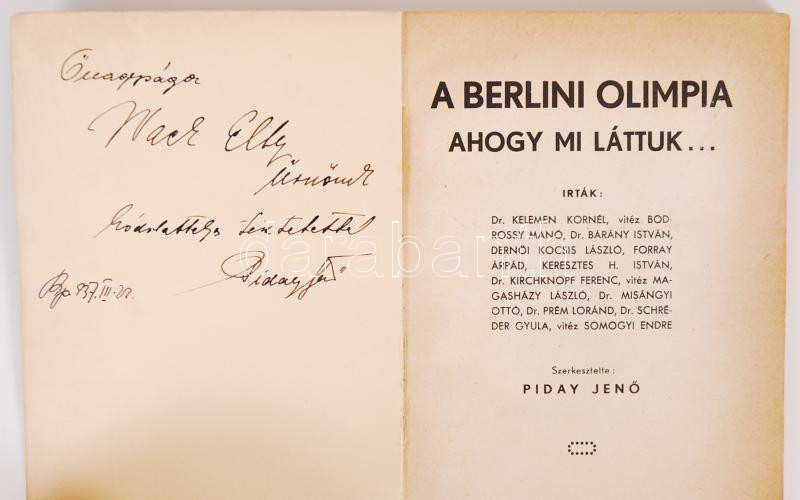 Őnagysága
Wack Elly
Úrnőnek
tisztelettel
Piday Jenő
Bp 937. III.
A BERLINI OLIMPIA
AHOGY MI LÁTTUK...
IRTÁK:
Dr. KELEMEN KORNÉL, vitéz BOD-
ROSSY MANÓ, Dr. BÁRÁNY ISTVÁN,
DERNŐI KOCSIS LÁSZLÓ, FORRAY
ÁRPÁD, KERESZTES H. ISTVÁN,
Dr. KIRCHKNOPF FERENC, vitéz MA-
GASHÁZY LÁSZLÓ, Dr. MISÁNGYI
OTTÓ, Dr. PRÉM LORÁND, Dr. SCHRÉ-
DER GYULA, vitéz SOMOGYI ENDRE
Szerkesztette:
PIDAY JENŐ
darabanth